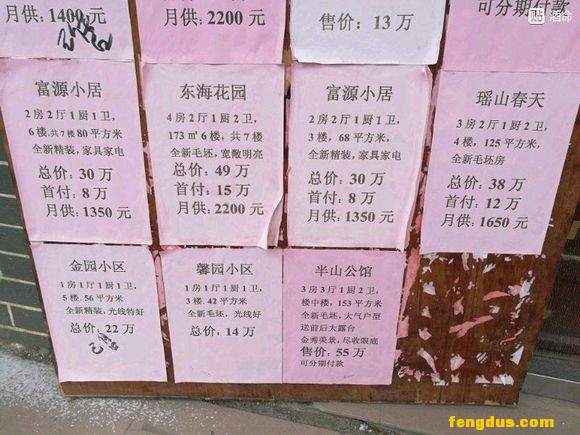 月供:1400元
月供:2200元
售价:13万
可分期付款
贴 酒命
富源小居
2房2厅1厨1卫,
6楼,共7楼80平方米
全新精装,家具家电
总价:30万
首付:8万
月供:1350元
东海花园
4房2厅1厨2卫,
173㎡6楼,共7楼
全新毛坯,宽敞明亮
总价:49万
首付:15万
月供:2200元
富源小居
2房2厅1厨2卫,
3楼,68平方米
全新精装,家具家电
总价:30万
首付:8万
月供:1350元
瑶山春天
3房2厅1厨2卫,
4楼,125平方米,
全新毛坯房
总价:38万
首付:12万
月供:1650元
金园小区
1房1厅1厨1卫,
5楼.56平方米
全新精装,光线特好
总价:22万
馨园小区
1房1厅1厨1卫,
3楼.42平方米
全新毛坯,光线好
总价:14万
半山公馆
3房3厅1厨2卫,
楼中楼,153平方米
全新毛坯,大气户型
送前后大露台
金秀美景,尽收眼底
售价:55万
可分期付款
fengdus.com